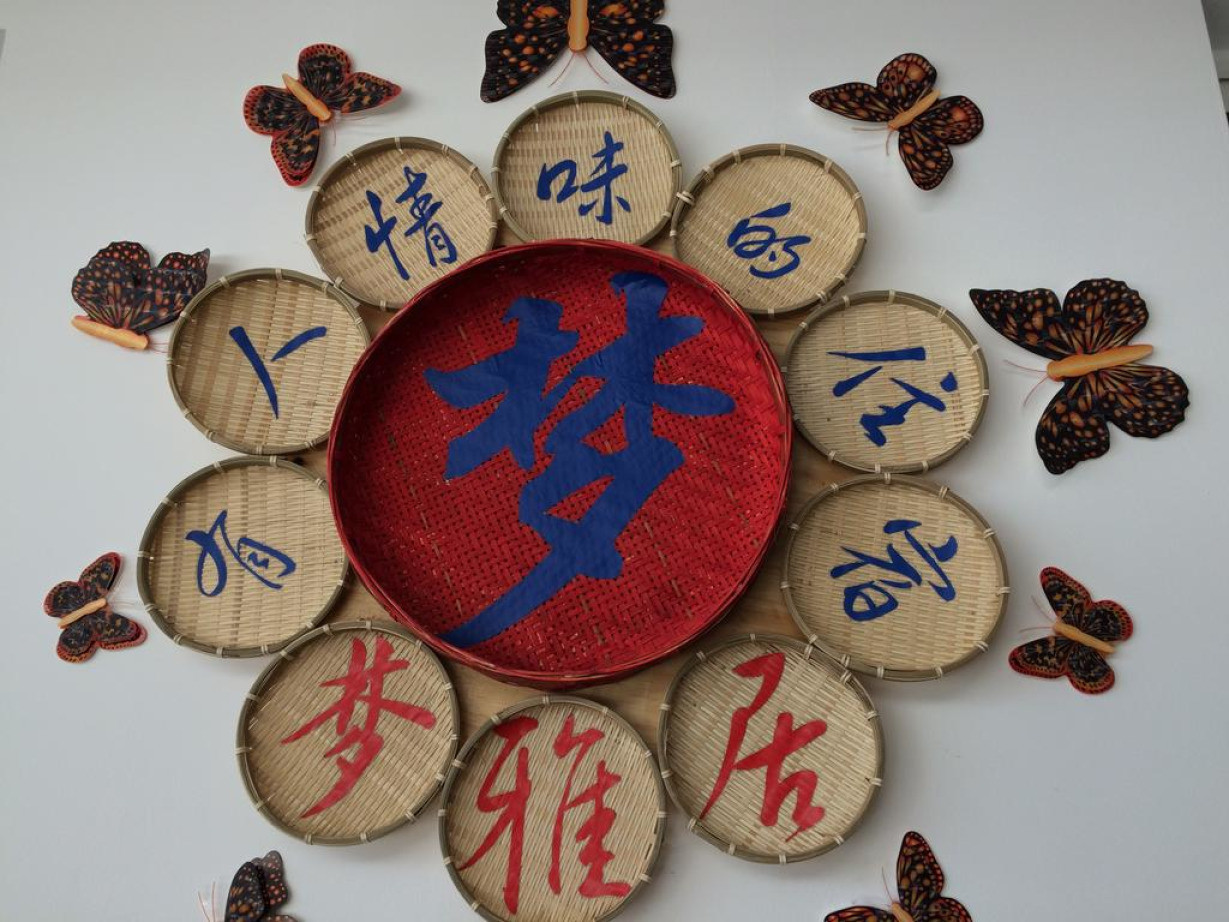 梦
有人情味的住宿
梦雅居